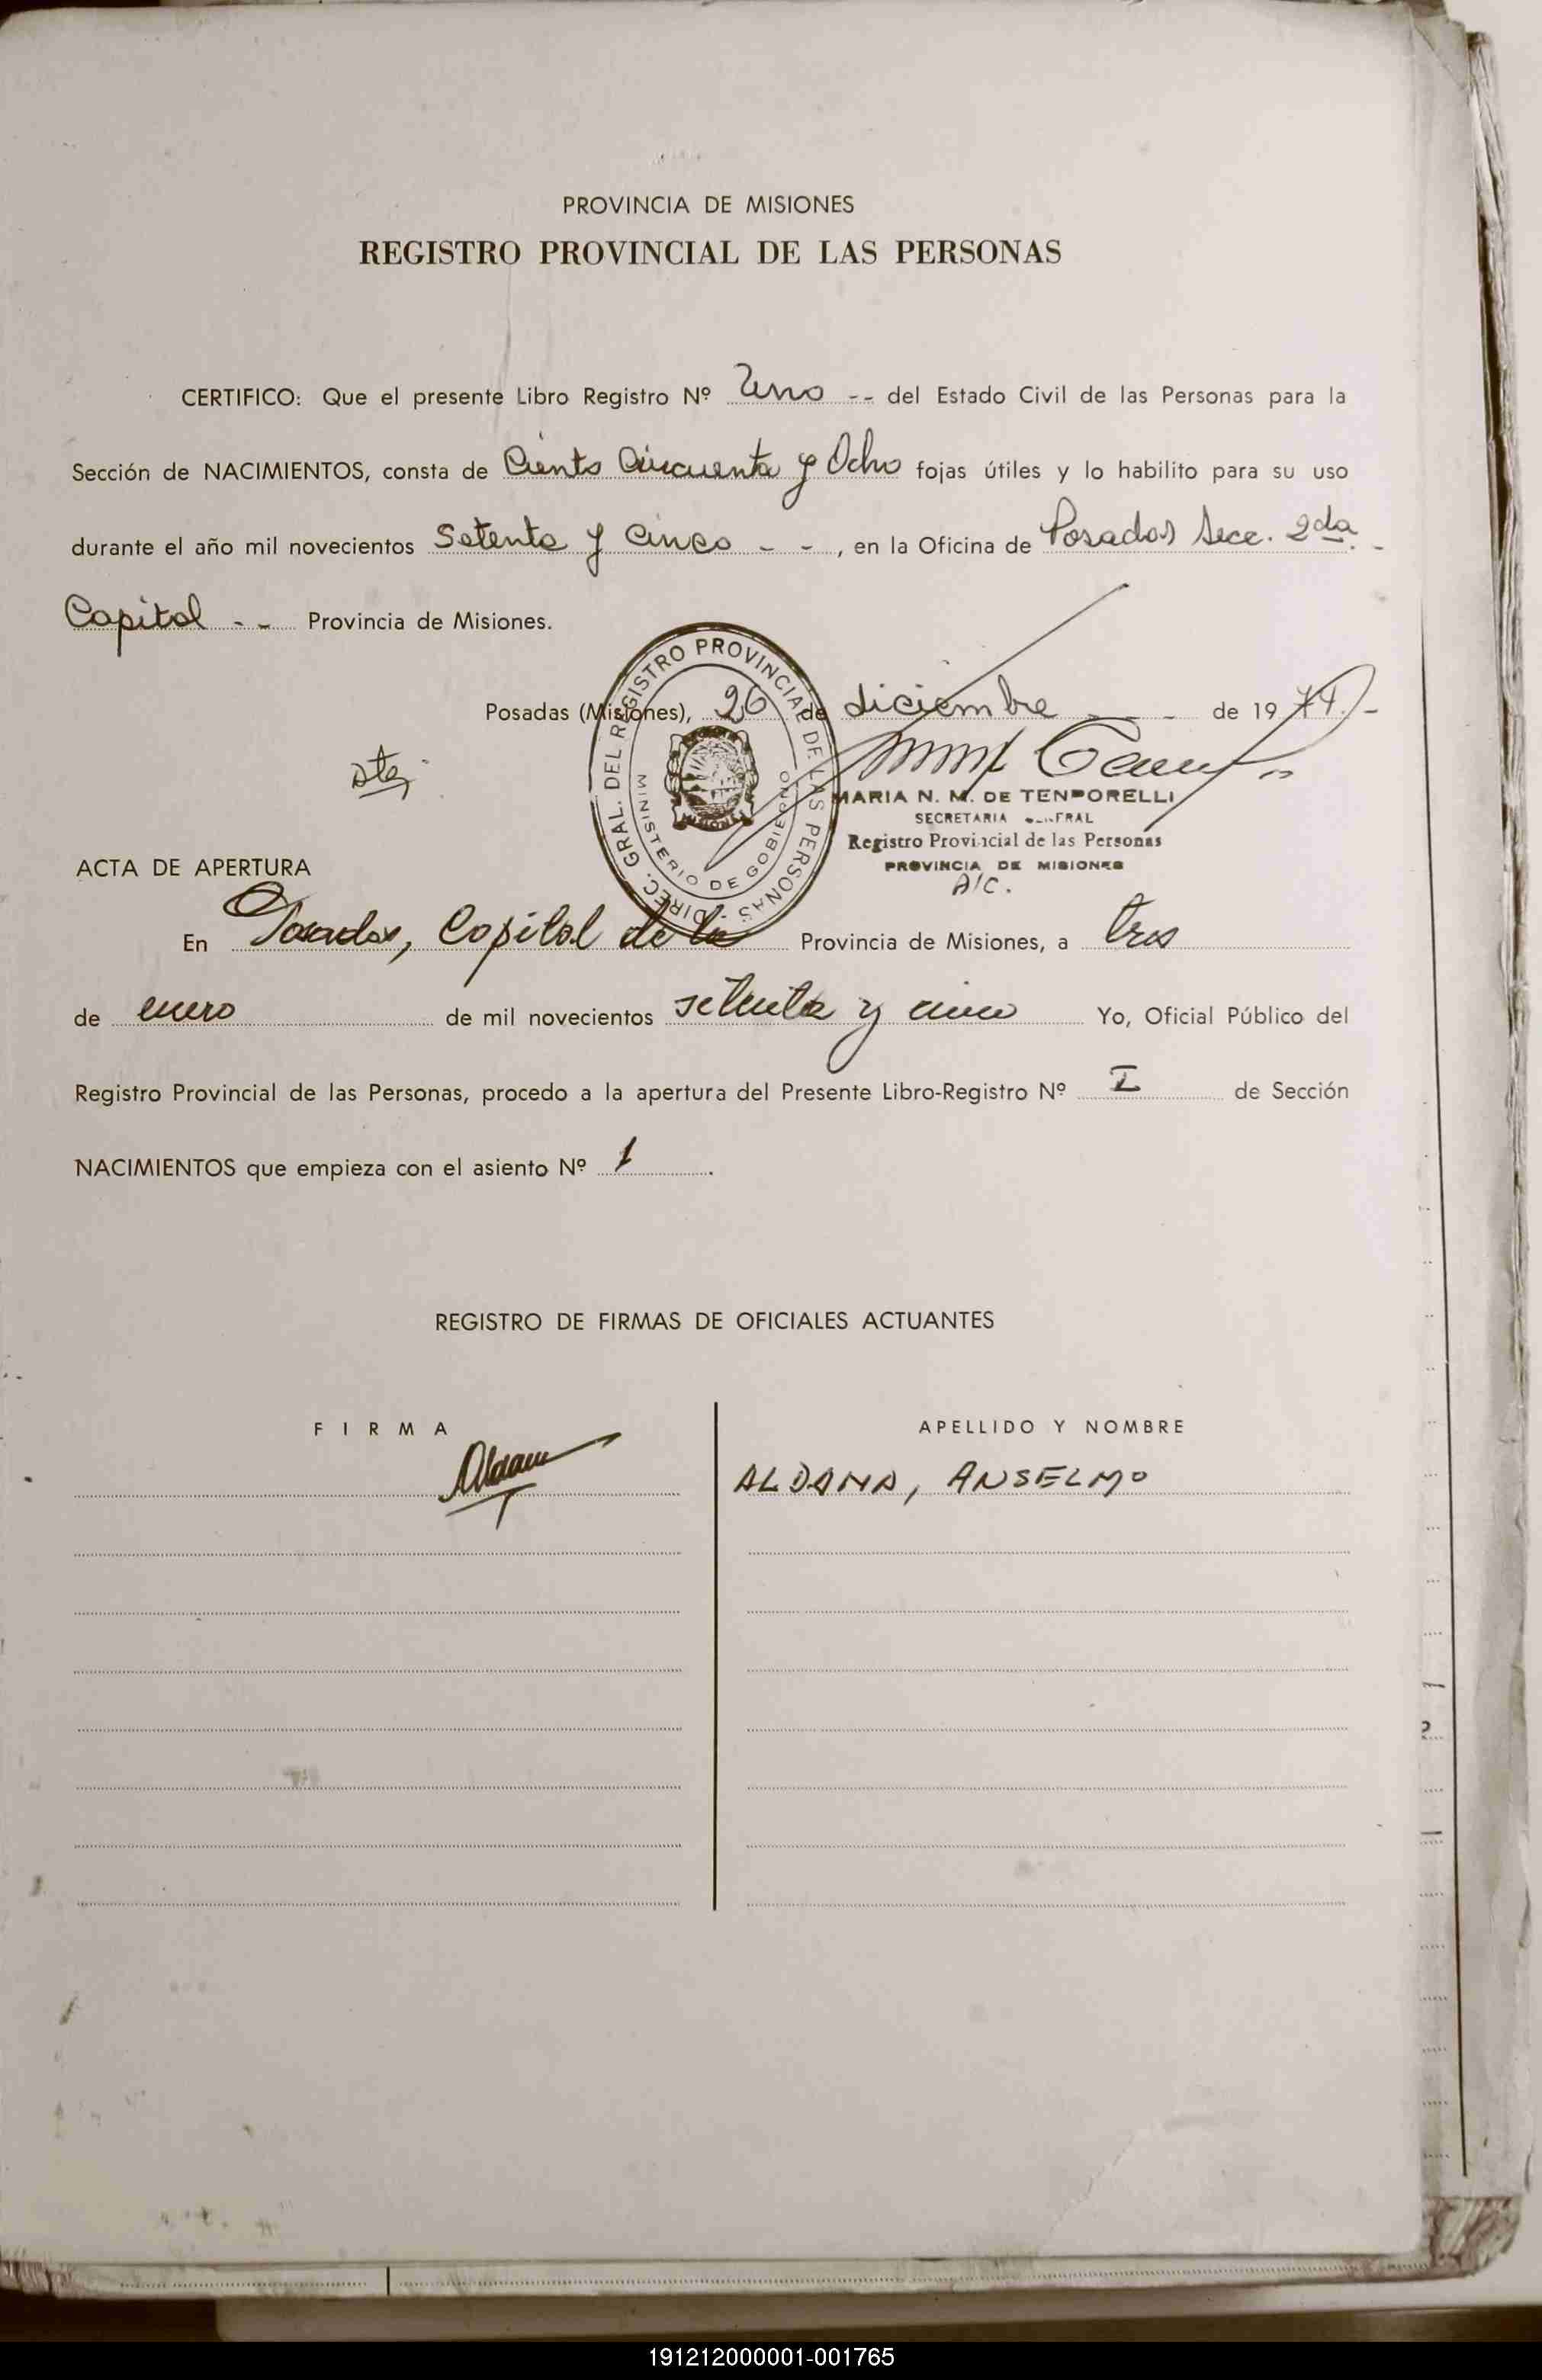 PROVINCIA DE MISIONES
REGISTRO PROVINCIAL DE LAS PERSONAS
CERTIFICO: Que el presente Libro Registro Nº Uno -- del Estado Civil de las Personas para la
Sección de NACIMIENTOS, consta de Ciento Cincuenta y Ocho fojas útiles y lo habilito para su uso
durante el año mil novecientos Setenta y Cinco - - , en la Oficina de Posadas Secc. 2da. -
Capital - - Provincia de Misiones.
Posadas (Misiones), 26 de diciembre - - de 1974.-
DIREC. GRAL. DEL REGISTRO PROVINCIAL DE LAS PERSONAS
MINISTERIO DE GOBIERNO
MISIONES
MARIA N. M. DE TENPORELLI
SECRETARIA GENERAL
Registro Provincial de las Personas
PROVINCIA DE MISIONES
A/C.
ACTA DE APERTURA
En Posadas, Capital de la Provincia de Misiones, a tres
de enero de mil novecientos setenta y cinco Yo, Oficial Público del
Registro Provincial de las Personas, procedo a la apertura del Presente Libro-Registro Nº I de Sección
NACIMIENTOS que empieza con el asiento Nº 1 .
REGISTRO DE FIRMAS DE OFICIALES ACTUANTES
FIRMA APELLIDO Y NOMBRE
ALDANA, ANSELMO
191212000001-001765